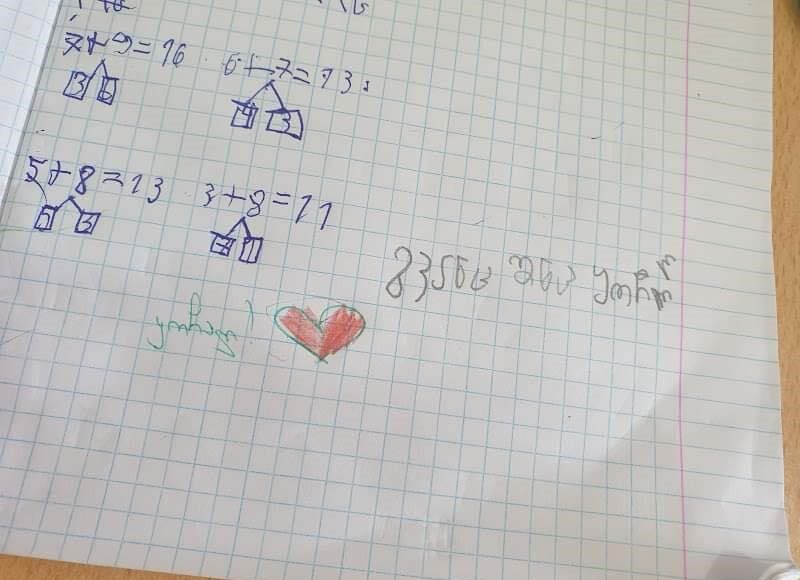 7+9=16 6+7=13
3 6 4 3
5+8=13 3+8=11
5 3 7 1
ყოჩაღ!